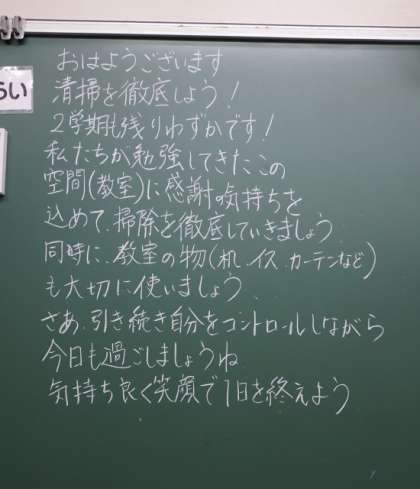 おはようございます
清掃を徹底しよう!
2学期も残りわずかです!
私たちが勉強してきたこの
空間(教室)に感謝の気持ちを
込めて、掃除を徹底していきましょう
同時に、教室の物(机、イス、カーテンなど)
も大切に使いましょう、
さあ、引き続き自分をコントロールしながら
今日も過ごしましょうね
気持ち良く笑顔で1日を終えよう
らい